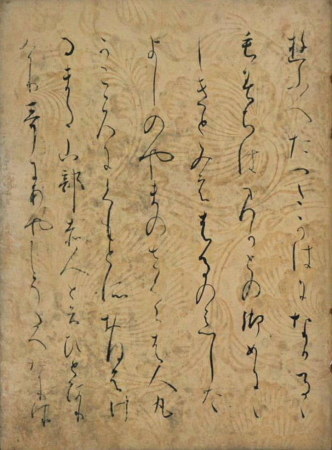 秋のゆふへたつたかはになかるゝ
もみちはみかとの御めに
しきとみえはるのあした
よしのやまのさくらは人丸
かこゝろにくもとのみおほえけ
るまた山部赤人と云ひとあ
りけり哥にあやしうたへなりけ